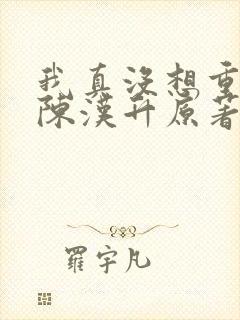 我真没想重
陳漢升原著
羅宇凡